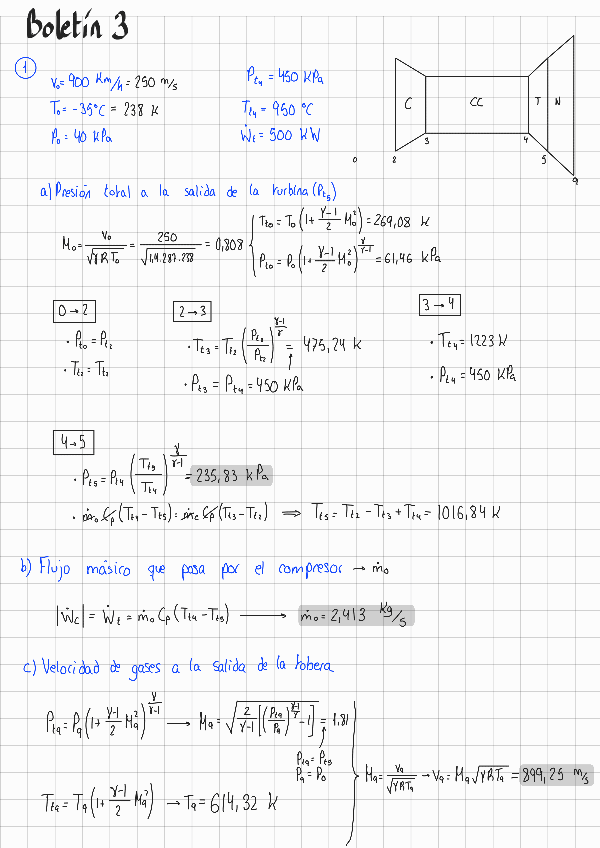 Boletín 3
1
V₀= 900 Km/h = 250 m/s
T₀= -35°C = 238 K
P₀= 40 kPa
Pt₄ = 450 KPa
Tt₄ = 950 °C
Ẇt = 500 KW
C CC T N
0 2 3 4 5 9
a) Presión total a la salida de la turbina (Pt₅)
M₀= V₀/√(γRT₀) = 250/√(1,4·287·238) = 0,808
Tt₀ = T₀(1+ (γ-1)/2 M₀²) = 269,08 K
Pt₀ = P₀(1+ (γ-1)/2 M₀²)^(γ/(γ-1)) = 61,46 kPa
0→2
· Pt₀ = Pt₂
· Tt₂ = Tt₂
2→3
· Tt₃ = Tt₂ (Pt₃/Pt₂)^((γ-1)/γ) = 475,24 K
· Pt₃ = Pt₄ = 450 KPa
3→4
· Tt₄ = 1223 K
· Pt₄ = 450 KPa
4→5
· Pt₅ = Pt₄ (Tt₅/Tt₄)^(γ/(γ-1)) = 235,83 kPa
· ṁ₀ Cp (Tt₄ - Tt₅) = ṁc Cp (Tt₃ - Tt₂) ⟹ Tt₅ = Tt₂ - Tt₃ + Tt₄ = 1016,84 K
b) Flujo másico que pasa por el compresor → ṁ₀
|Ẇc| = Ẇt = ṁ₀ Cp (Tt₄ - Tt₅) → ṁ₀ = 2,413 Kg/s
c) Velocidad de gases a la salida de la tobera
Pt₉ = P₉(1+ (γ-1)/2 M₉²)^(γ/(γ-1)) → M₉ = √(2/(γ-1) [(Pt₉/P₉)^((γ-1)/γ) - 1]) = 1,81
Pt₉ = Pt₅
P₉ = P₀
M₉ = V₉/√(γRT₉) → V₉ = M₉√(γRT₉) = 899,25 m/s
Tt₉ = T₉(1+ (γ-1)/2 M₉²) → T₉ = 614,32 K